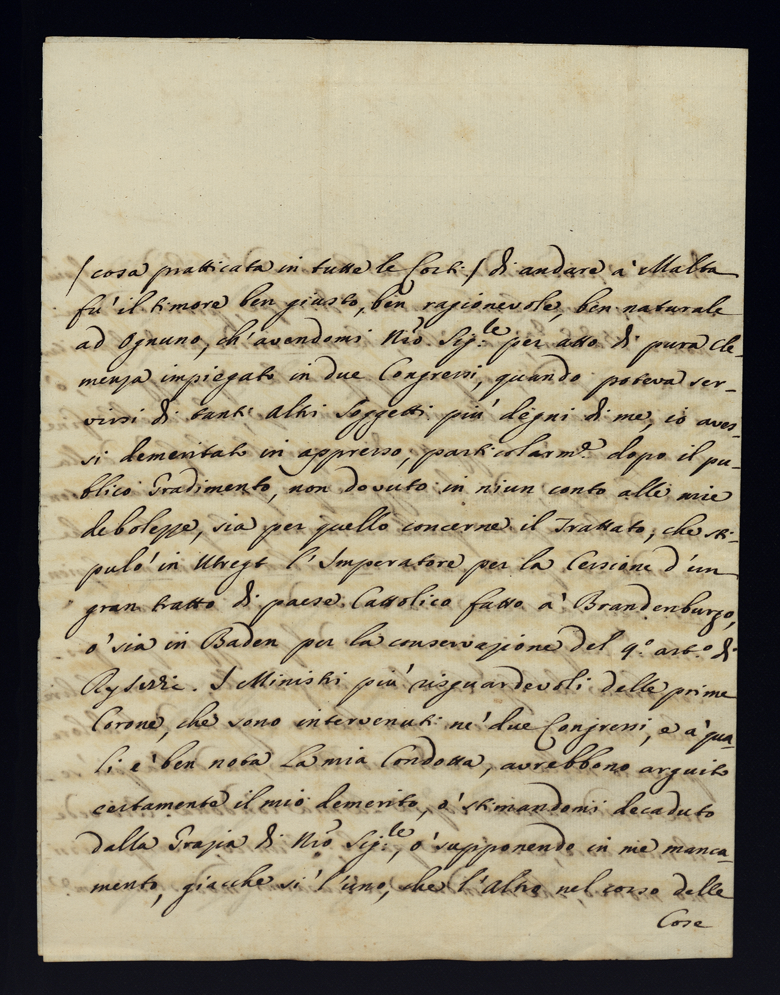 / cosa pratticata in tutte le Corti / di andare à Malta
fù il timore ben giusto, ben ragionevole, ben naturale
ad Ognuno, ch'avendomi Nrõ Sig.le per atto di pura cle-
menza impiegato in due Congressi, quando poteva ser-
virsi di tanti Altri Soggetti più degni di me, io aves-
si demeritato in appresso, particolarm.e dopo il pu-
blico Gradimento, non dovuto in niun conto alle mie
debolezze, sia per quello concerne il Trattato, che sti-
pulò in Utregt l'Imperatore per la Cessione d'un
gran tratto di paese Cattolico fatto à Brandenburgo,
ò sia in Baden per la conservazione del 4.o art.o di
Rysvvic. I Ministri più risguardevoli delle prime
Corone, che sono intervenuti ne' due Congressi, e à qua-
li è ben nota La mia Condotta, avrebbono arguito
certamente il mio demerito, ò stimandomi decaduto
dalla Grazia di Nrõ Sig.le, ò supponendo in me manca-
mento, giacche sì l'uno, che l'Altro nel corso delle
Cose